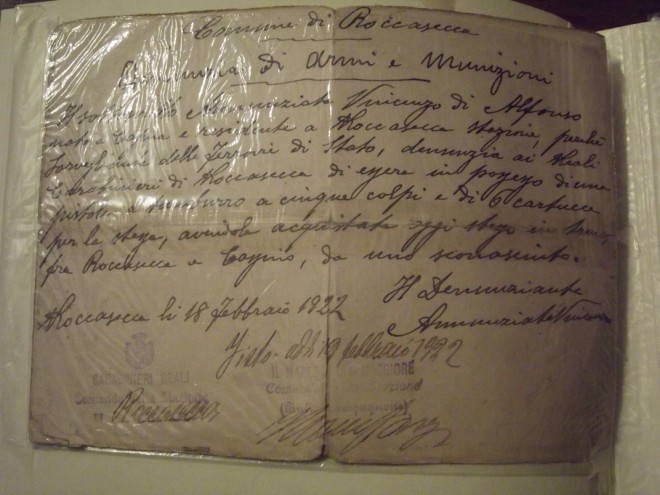 Comune di Roccasecca
Denunzia di Armi e Munizioni
Il sottoscritto Annunziata Vincenzo di Alfonso
nato a Cassino e residente a Roccasecca stazione, perchè
Sorvegliante delle Ferrovie di Stato, denunzia ai Reali
Carabinieri di Roccasecca di essere in possesso di una
pistola a tamburro a cinque colpi e di 6 cartucce
per la stessa, avendole acquistate oggi stesso in treno,
fra Roccasecca e Cassino, da uno sconosciuto.
Roccasecca li 18 febbraio 1922
Il Denunziante
Annunziata Vincenzo
Visto - addì 19 febbraio 1922
CARABINIERI REALI
IL MARESCIALLO MAGGIORE
Roccasecca